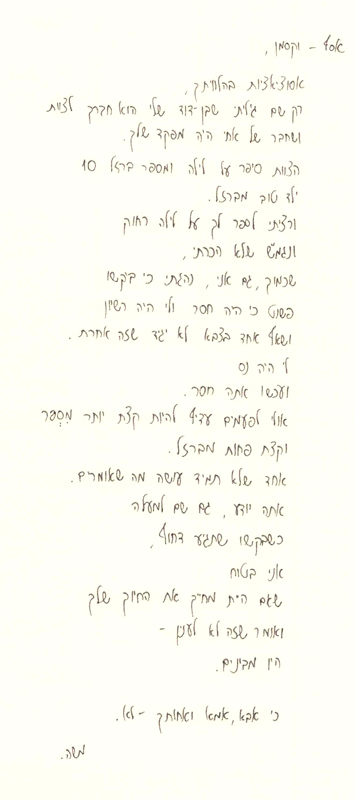 אסף - וקסמן,
אסוציאציות בהלוויתך,
רק שם גיליתי שבן-דוד שלי הוא חברך לצוות
ושחבר של אחי היה מפקד שלך.
הצוות סיפר על לילה ומספר ברזל 10
ילד טוב מברזל.
ורציתי לספר לך על לילה רחוק
ונגמ"ש שלא הכרתי,
שכמוך, גם אני, נהגתי כי ביקשו
פשוט כי היה חסר ולי היה רשיון
ושאף אחד בצבא לא יגיד שזה אחרת.
לי היה נס
ועכשו אתה חסר.
אולי לפעמים עדיף להיות קצת יותר מספר
וקצת פחות מברזל.
אחד שלא תמיד עושה מה שאומרים.
אתה יודע, גם שם למעלה
כשבקשו שתגיע דחוף,
אני בטוח
שגם היית מחייך את החיוך שלך
ואומר שזה לא לענין -
היו מבינים.
כי אבא, אמא ואחותך - לא.
משה.